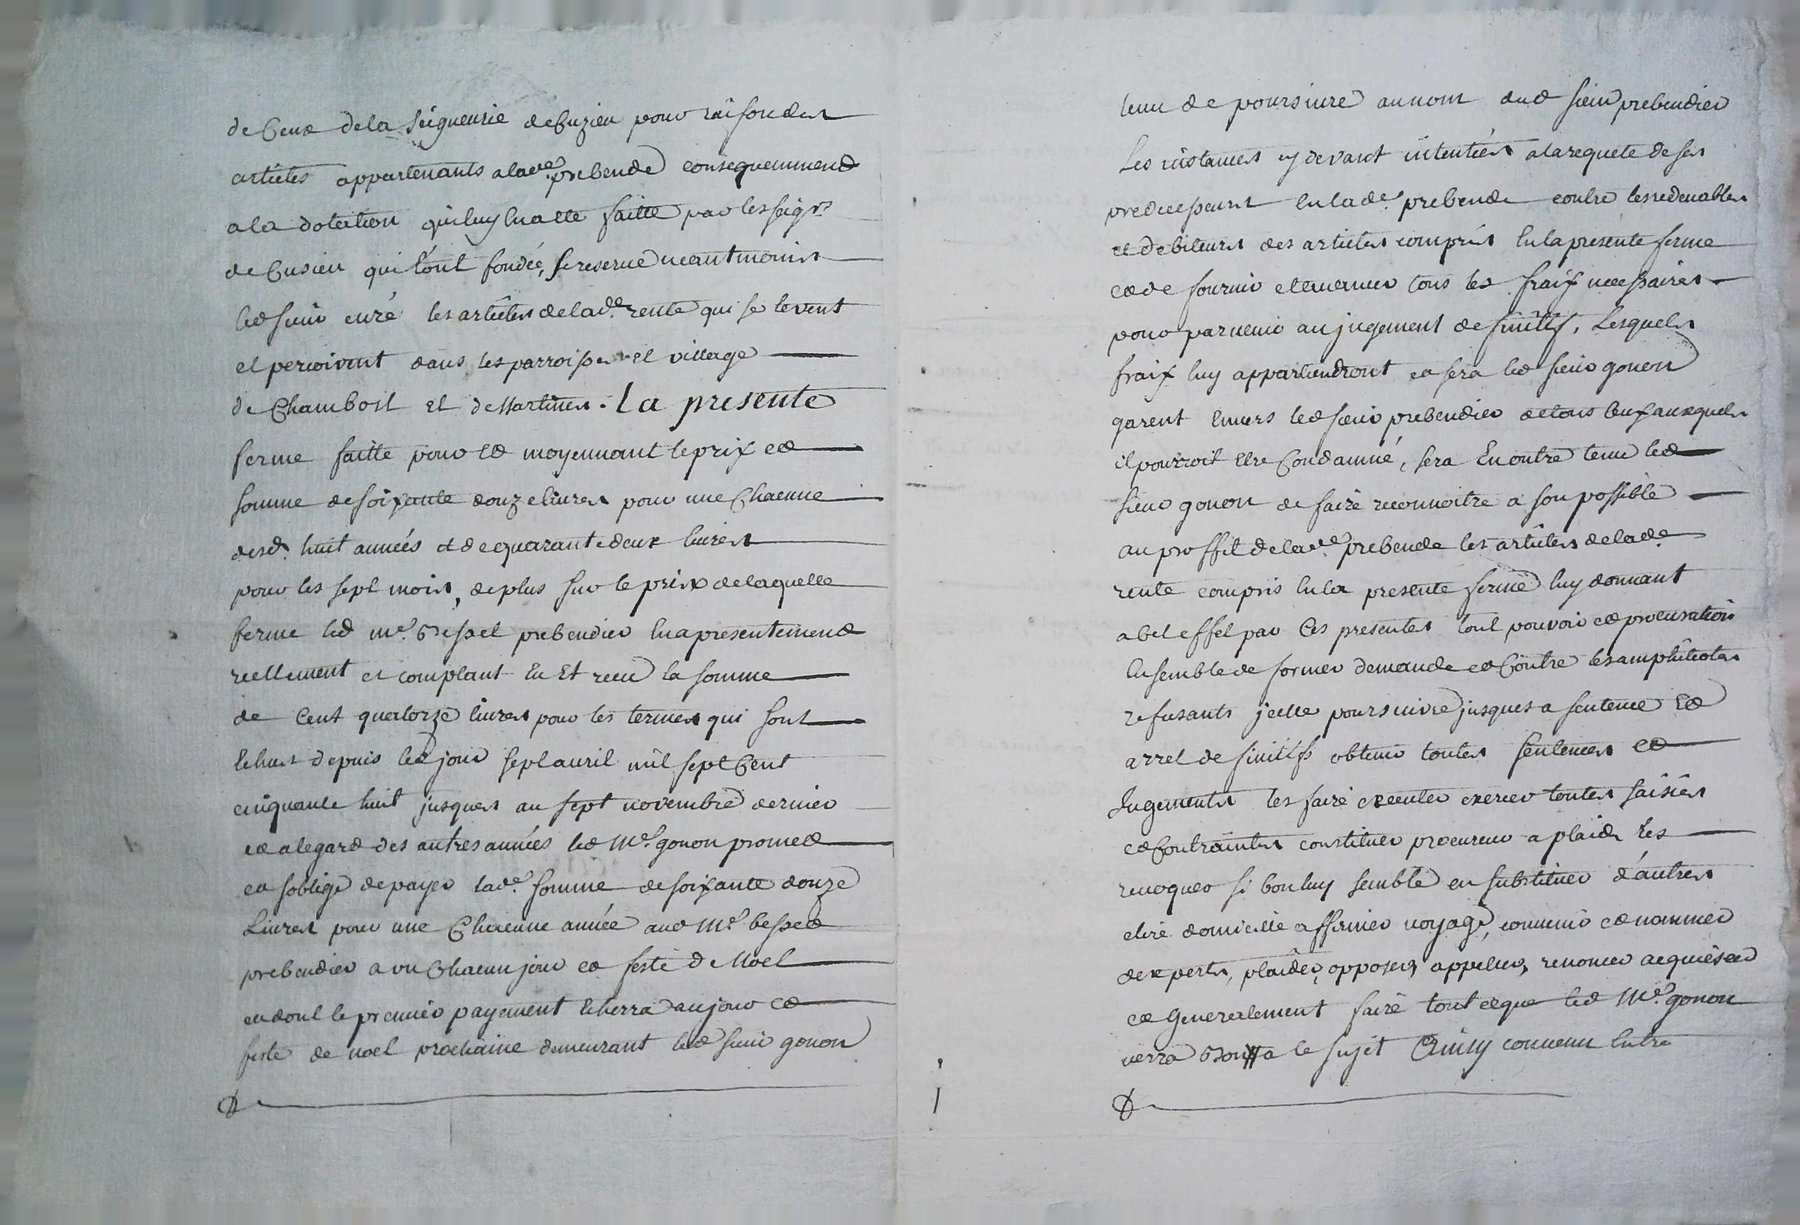 de Ceux de la Seigneurie de Cuzieu pour raison des
articles appartenants a lad.e prebende consequemment
a la dotation qui luy en a ette faitte par les seigrs
de Cusieu qui l'ont fondée, se reserve neantmoins
led sieur curé les articles de lad.e rente qui se levent
et percoivent dans les parroisses et village
de Chambost et de Martines. La presente
ferme faitte pour et moyennant le prix et
somme de soixante douze livres pour une Chacune
desd. huit années et de quarante deux livres
pour les sept mois, de plus sur le prix de laquelle
ferme led me. Bessel prebendier en a presentement
reellement et comptant eu et receu la somme
de Cent quatorze livres pour les termes qui sont
Echus depuis led jour sept avril mil sept Cent
cinquante huit jusques au sept novembre dernier
et a legard des autres années led Me. gonon promet
et soblige de payer lad.e somme de soixante douze
Livres pour une Chacune année aud Me. besset
prebendier a un Chacun jour et feste de Noel
et dont le premier payement Echerra au jour et
feste de noel prochaine demeurant led sieur gonon
tenu de poursivre au nom dud sieur prebendier
Les instances cy devant intentées a la requete de ses
predecesseurs en lad.e prebende contre les redevables
et debiteurs des articles compris en la presente ferme
et de fournir et avancer tous les fraix necessaires
pour parvenir au jugement definitif, Lesquels
fraix luy appartiendront et sera led sieur gonon
garent Envers led sieur prebendier de tous Ceux auxquels
il pourroit Etre Condamné, sera En outre tenu led
sieur gonon de faire reconnoitre a son possible
au proffit de lad.e prebende les articles de lad.e
rente compris en la presente ferme luy donnant
a Cet effet par Ces presentes tout pouvoir et procuration
Ensemble de former demande et Contre les amphiteotes
refusants icelle poursuivre jusques a sentence et
arret definitifs obtenir toutes sentences et
Jugements les faire executer exercer toutes saisies
et Contraintes constituer procureur a plaids Les
revoquer si bon luy semble en substituer d'autres
elire domicille affirmer voyage, convenir et nommer
d'experts, plaider, opposer, appeller, renoncer acquiescer
et generealement faire tout ce que led Me. gonon
verra bon a le sujet Ainsy convenu Entre